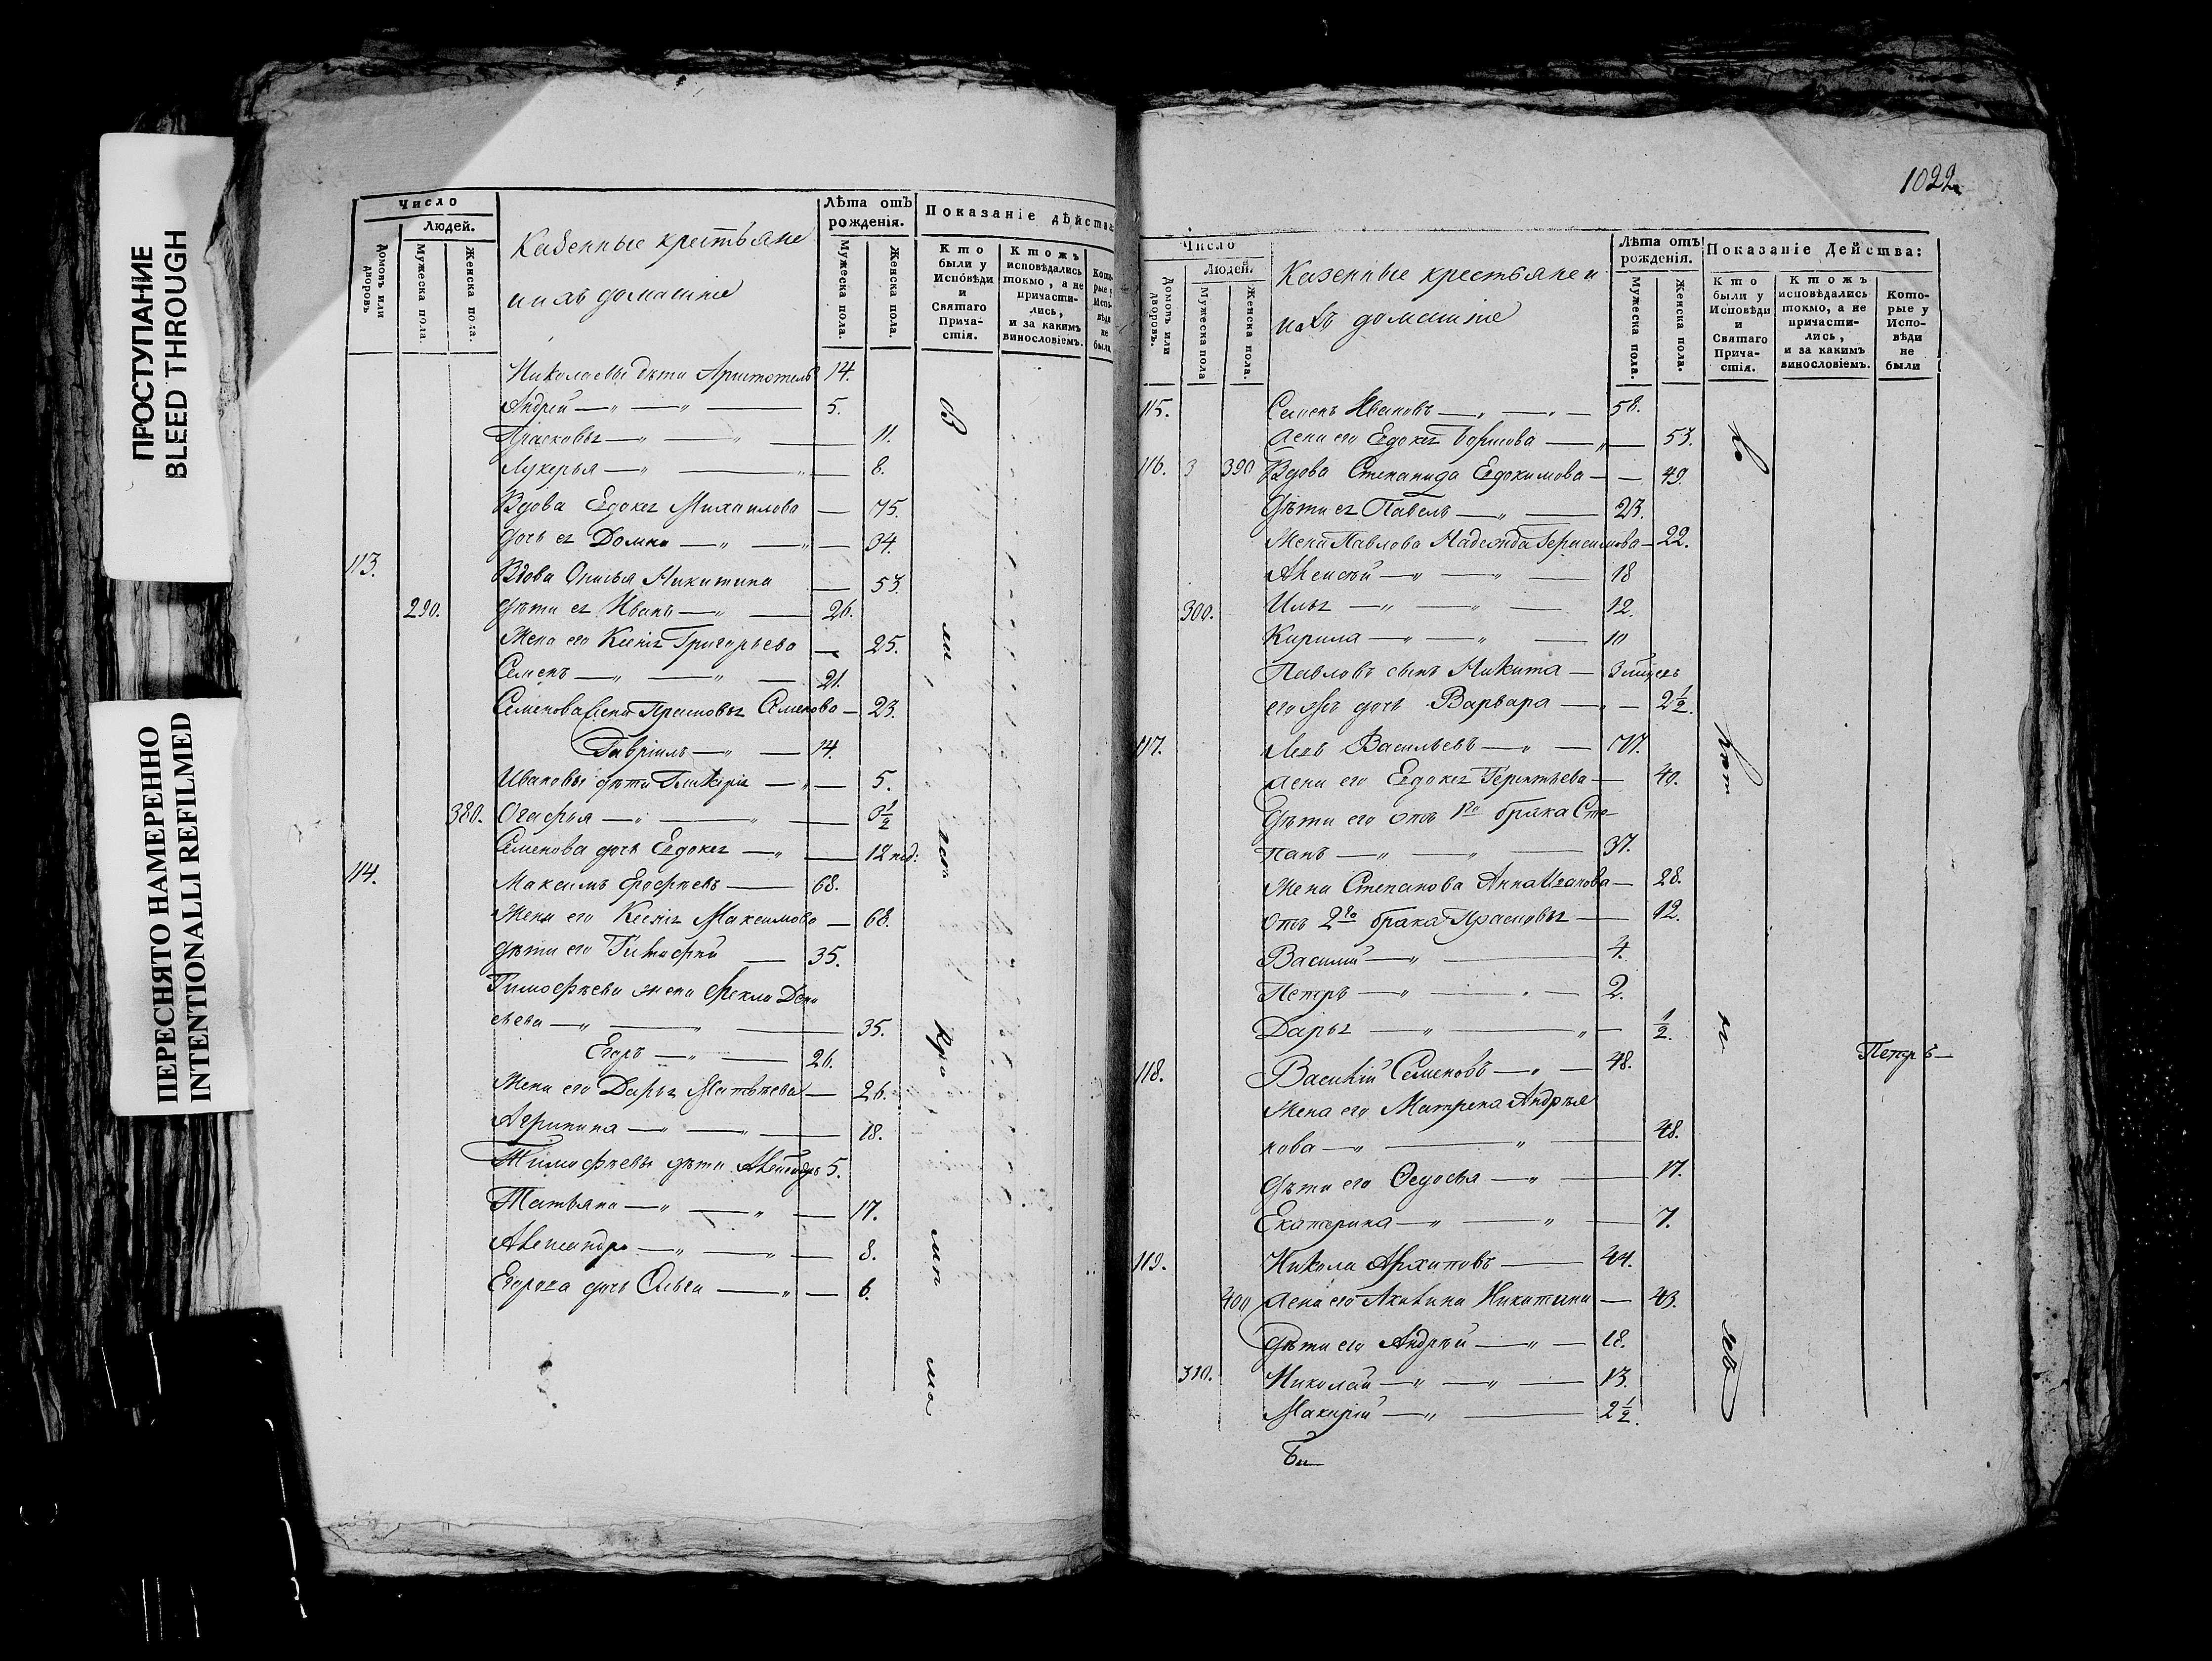 ПРОСТУПАНИЕ
BLEED THROUGH
ПЕРЕСНЯТО НАМЕРЕННО
INTENTIONALLI REFILMED
Число
Людей.
Домовъ или дворовъ.
Мужеска пола.
Женска пола.
Казенные крестьяне
и ихъ домашніе
Лѣта отъ рожденія.
Мужеска пола.
Женска пола.
Показаніе дѣйства
Кто были у Исповѣди и Святаго Причастія.
Ктожъ исповѣдались токмо, а не причастились, и за какимъ винословіемъ.
Которые у Исповѣди не были
Николаевы дѣти Аристотель 14.
Андрей — „ — „ — 5.
Прасковья — „ — „ — 11.
Лукерья — „ — „ — 8.
Вдова Евдокея Михаилова — 75.
Дочь ея Домна — „ — „ — 34.
113. Вдова Никитина — 53.
290. Дѣти ея Иванъ — „ — 26.
Жена его Ксенія Григорьева — 25.
Семенъ — „ — „ — 21.
Семенова жена Семенова — 23.
Гавріилъ — „ — 14.
Ивановы дѣти — „ — 5.
380. Агафья — „ — „ —
Семенова дочь Евдокея — „ — 12 нед:
114. Максимъ Ерофѣевъ — 68.
Жена его Ксенія Максимова — 68.
Дѣти его Тимофей — 35.
Тимофѣева жена Фекла
— „ — „ — 35.
Егоръ — „ — 26.
Жена его Дарья Матвѣева — 26.
Агрипина — „ — „ — 18.
Тимофѣевы дѣти 5.
Татьяна — „ — „ — 17.
Александра — „ — „ — 8.
Егорова дочь Ольга — „ — 6.
1022
Число
Людей.
Домовъ или дворовъ.
Мужеска пола
Женска пола.
Казенные крестьяне и
ихъ домашніе
Лѣта отъ рожденія.
Мужеска пола.
Женска пола.
Показаніе Действа:
Кто были у Исповѣди и Святаго Причастія.
Ктожъ исповѣдались токмо, а не причастились, и за какимъ винословіемъ.
Которые у Исповѣди не были
115. Семенъ Ивановъ — „ — „ — 58.
Жена его Евдокея Борисова — „ — 53.
116. 3 390 Вдова Степанида Евдокимова — 49.
Дѣти ея Павелъ — „ — 23.
Жена Павлова Надежда Герасимова — 22.
Алексѣй — „ — „ — 18
300. Илья — „ — „ — 12.
Кирила — „ — „ — 10
Павловъ сынъ Никита —
его жъ дочь Варвара — „ — 2 1/2.
117. Левъ Васильевъ — „ —
Жена его Евдокея Терентьева — 40.
Дѣти его отъ 1го брака Сте-
панъ — „ — „ — 37.
Жена Степанова Анна — 28.
отъ 2го брака Прасковья — 12.
Василій — „ — 4.
Петръ — „ — „ — 2.
Дарья — „ — „ — 1/2.
Петръ —
118. Василій Семеновъ — „ — 48.
Жена его Матрена Андрея
нова — „ — „ — 48.
Дѣти его Федосья — „ — 17.
Екатерина — „ — „ — 7.
119. Никола Архиповъ — 44.
400 Жена его Акилина Никитина — 43.
Дѣти его Андрей — „ — 18.
310. Николай — „ — „ — 13.
Макарій — „ — 2 1/2.